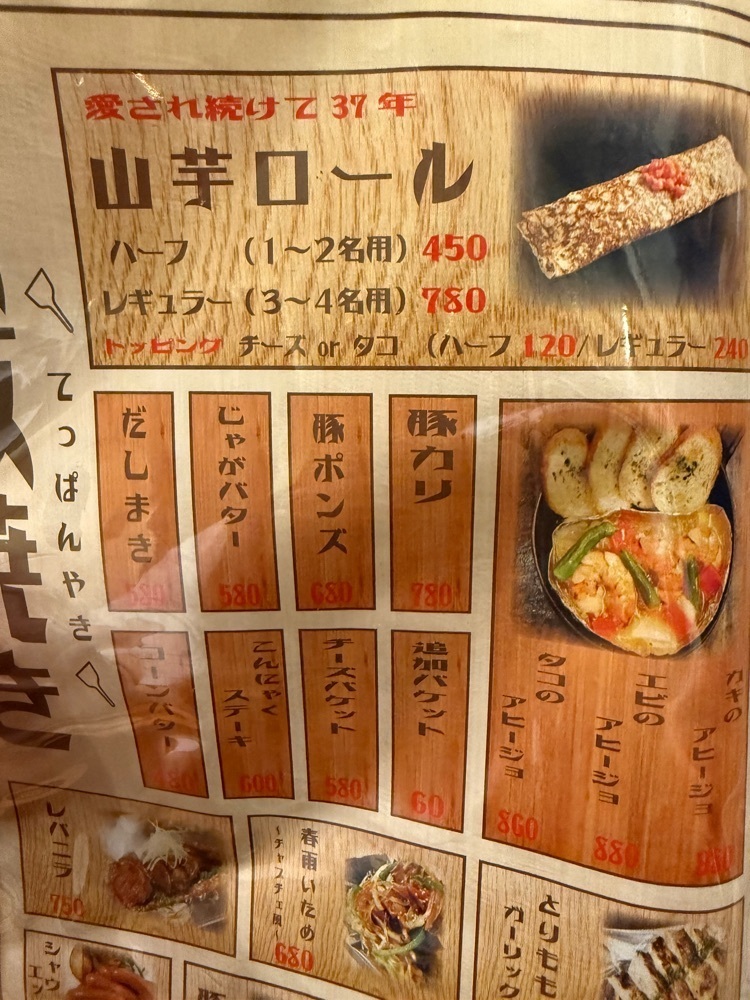 愛され続けて37年
山芋ロール
ハーフ （1～2名用） 450
レギュラー（3～4名用） 780
トッピング チーズ or タコ （ハーフ 120/レギュラー 240
てっぱんやき
豚カリ
780
豚ポンズ
680
じゃがバター
580
だしまき
580
追加バケット
60
チーズバケット
580
こんにゃく
ステーキ
600
コーンバター
480
カキの
アヒージョ
エビの
アヒージョ
880
タコの
アヒージョ
860
レバニラ
750
春雨いため
～チャプチェ風～
680
とりもも
ガーリック
シャウ
エッ
豚